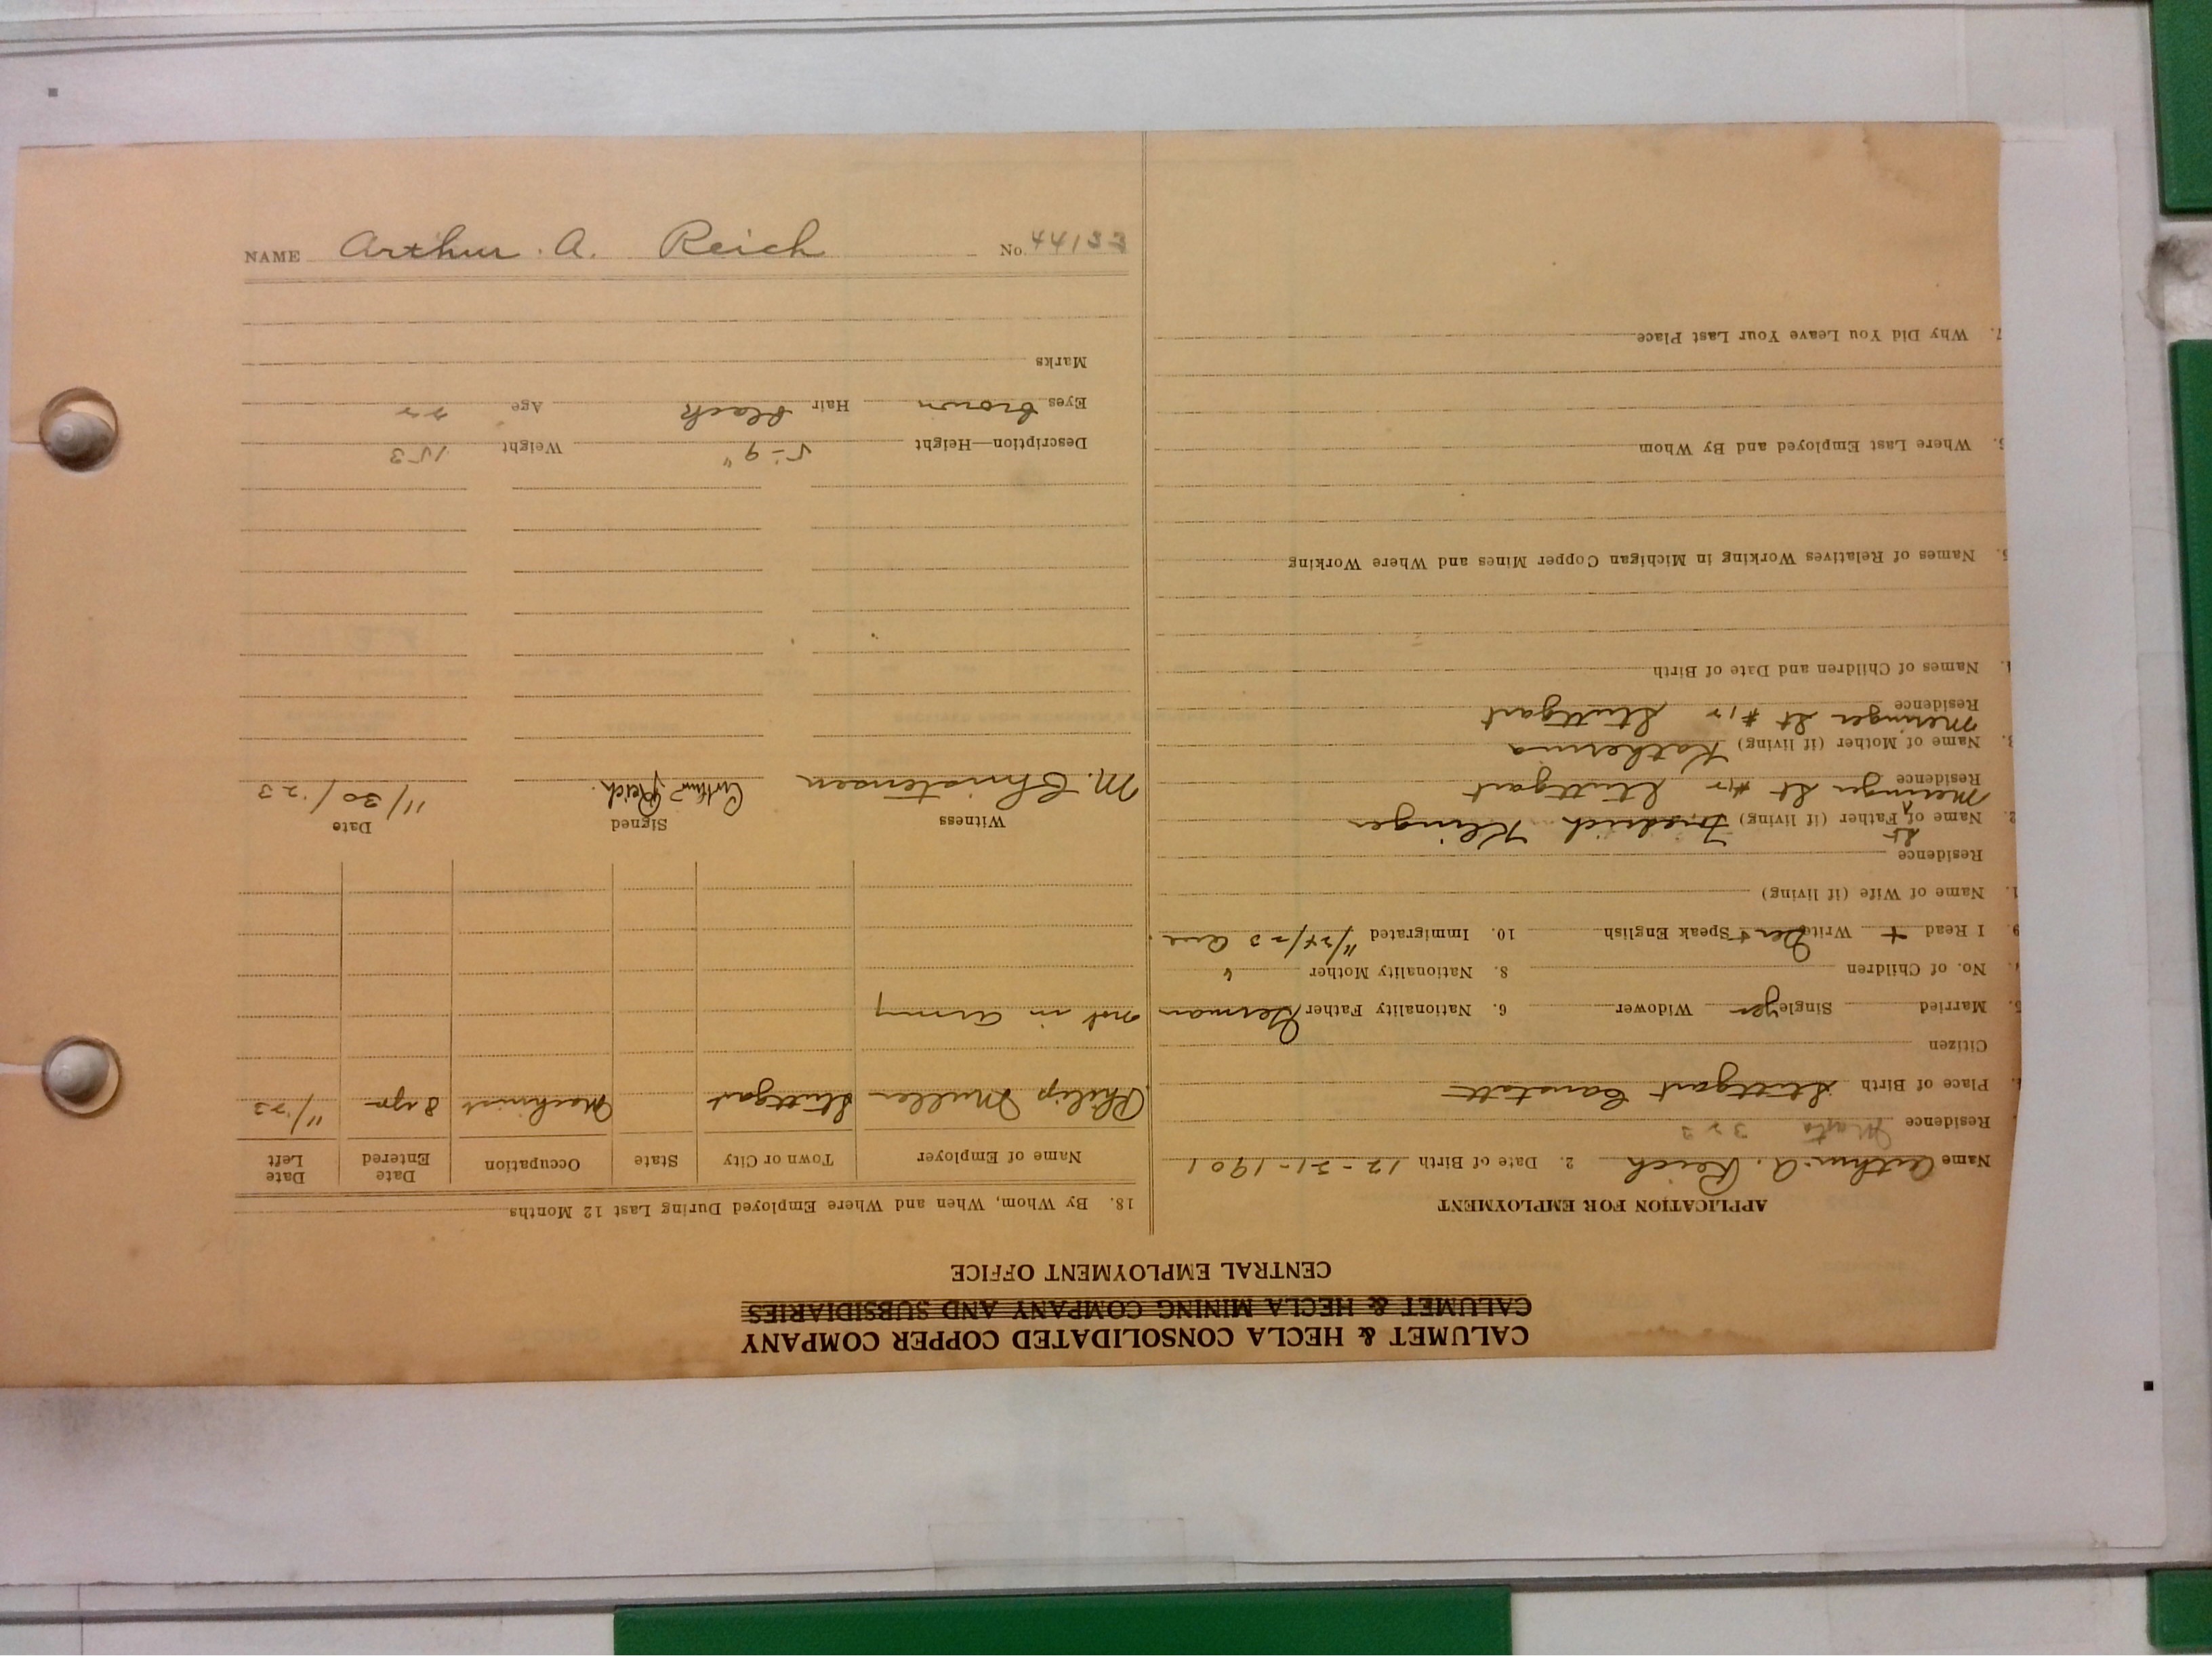 CALUMET & HECLA CONSOLIDATED COPPER COMPANY
CALUMET & HECLA MINING COMPANY AND SUBSIDIARIES
CENTRAL EMPLOYMENT OFFICE
APPLICATION FOR EMPLOYMENT
Name Arthur A. Reich 2. Date of Birth 12-21-1901
Residence
Place of Birth Stuttgart Canstatt
Citizen
5. Married Single yes Widower 6. Nationality Father German
No. of Children 8. Nationality Mother "
9. I Read + Write Speak English 10. Immigrated 11/24/23
1. Name of Wife (if living)
Residence
2. Name of Father (if living) Friedrich Klinger
St
Residence Meringer St #12 Stuttgart
3. Name of Mother (if living) Katherina
Residence Meringer St #12 Stuttgart
4. Names of Children and Date of Birth
5. Names of Relatives Working in Michigan Copper Mines and Where Working
6. Where Last Employed and By Whom
7. Why Did You Leave Your Last Place
18. By Whom, When and Where Employed During Last 12 Months
Name of Employer Town or City State Occupation Date Entered Date Left
Philip Muller Stuttgart Machinist 8 yrs 11/23
not in army
Witness Signed Date
M. Christensen Arthur Reich. 11/30/23
Description—Height 5-9" Weight 153
Eyes brown Hair black Age 22
Marks
NAME Arthur A. Reich No. 44133